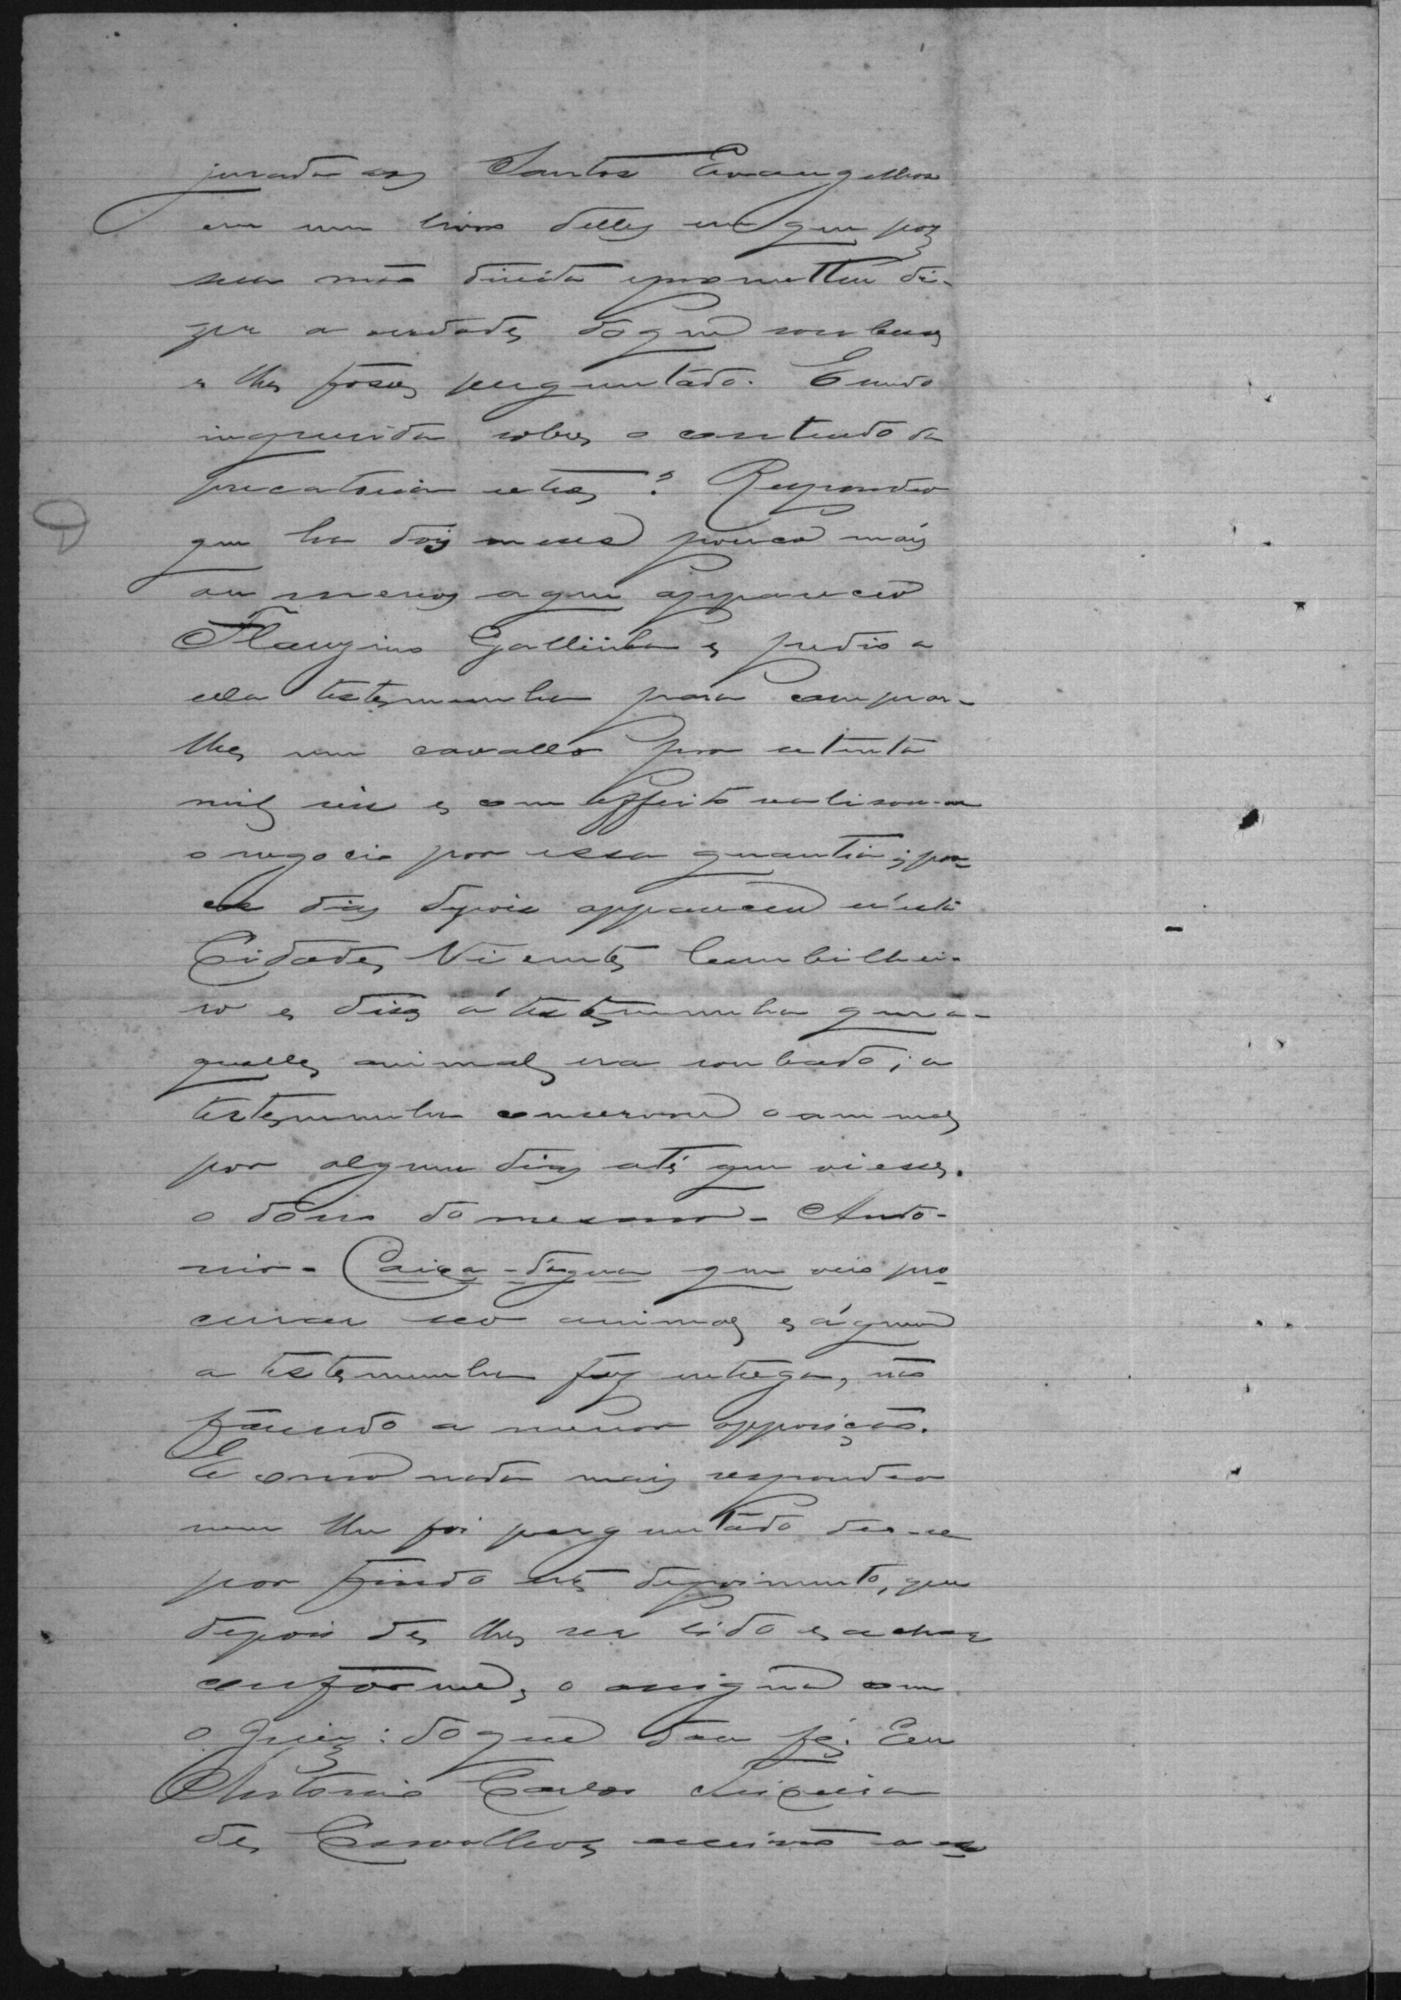 jurada aos Santos Evangelhos
em um livro delles em que poz
sua mão direita e prometteu di-
zer a verdade do que soubesse
e lhe fosse perguntado. E sendo
inquerida sobre o conteudo da
precatoria retro? Respondeo
que ha dois meses pouco mais
ou menos aqui appareceo
Flauzino Gallinha e pedio a
ella testemunha para comprar-
lhe um cavallo por setenta
mil reis e com effeito realisou-se
o negocio por essa quantia; pou-
cos dias depois appareceu n'esta
Cidade Vicente Cambilhei-
ro e disse á testemunha que a-
quelle animal era roubado; a
testemunha conservou o animal
por alguns dias até que viesse
o dono do mesmo - Anto-
nio - Caixa-d'agua que veio pro-
curar seo animal e á quem
a testemunha fez entrega, não
fazendo a menor opposição.
E como nada mais respondeo
nem lhe foi perguntado deu-se
por findo este depoimento, que
depois de lhe ser lido e achar
conforme, o assigna com
o Juiz: do que dou fé. Eu
Antonio Carlos Teixeira
de Carvalho, escrivão o es